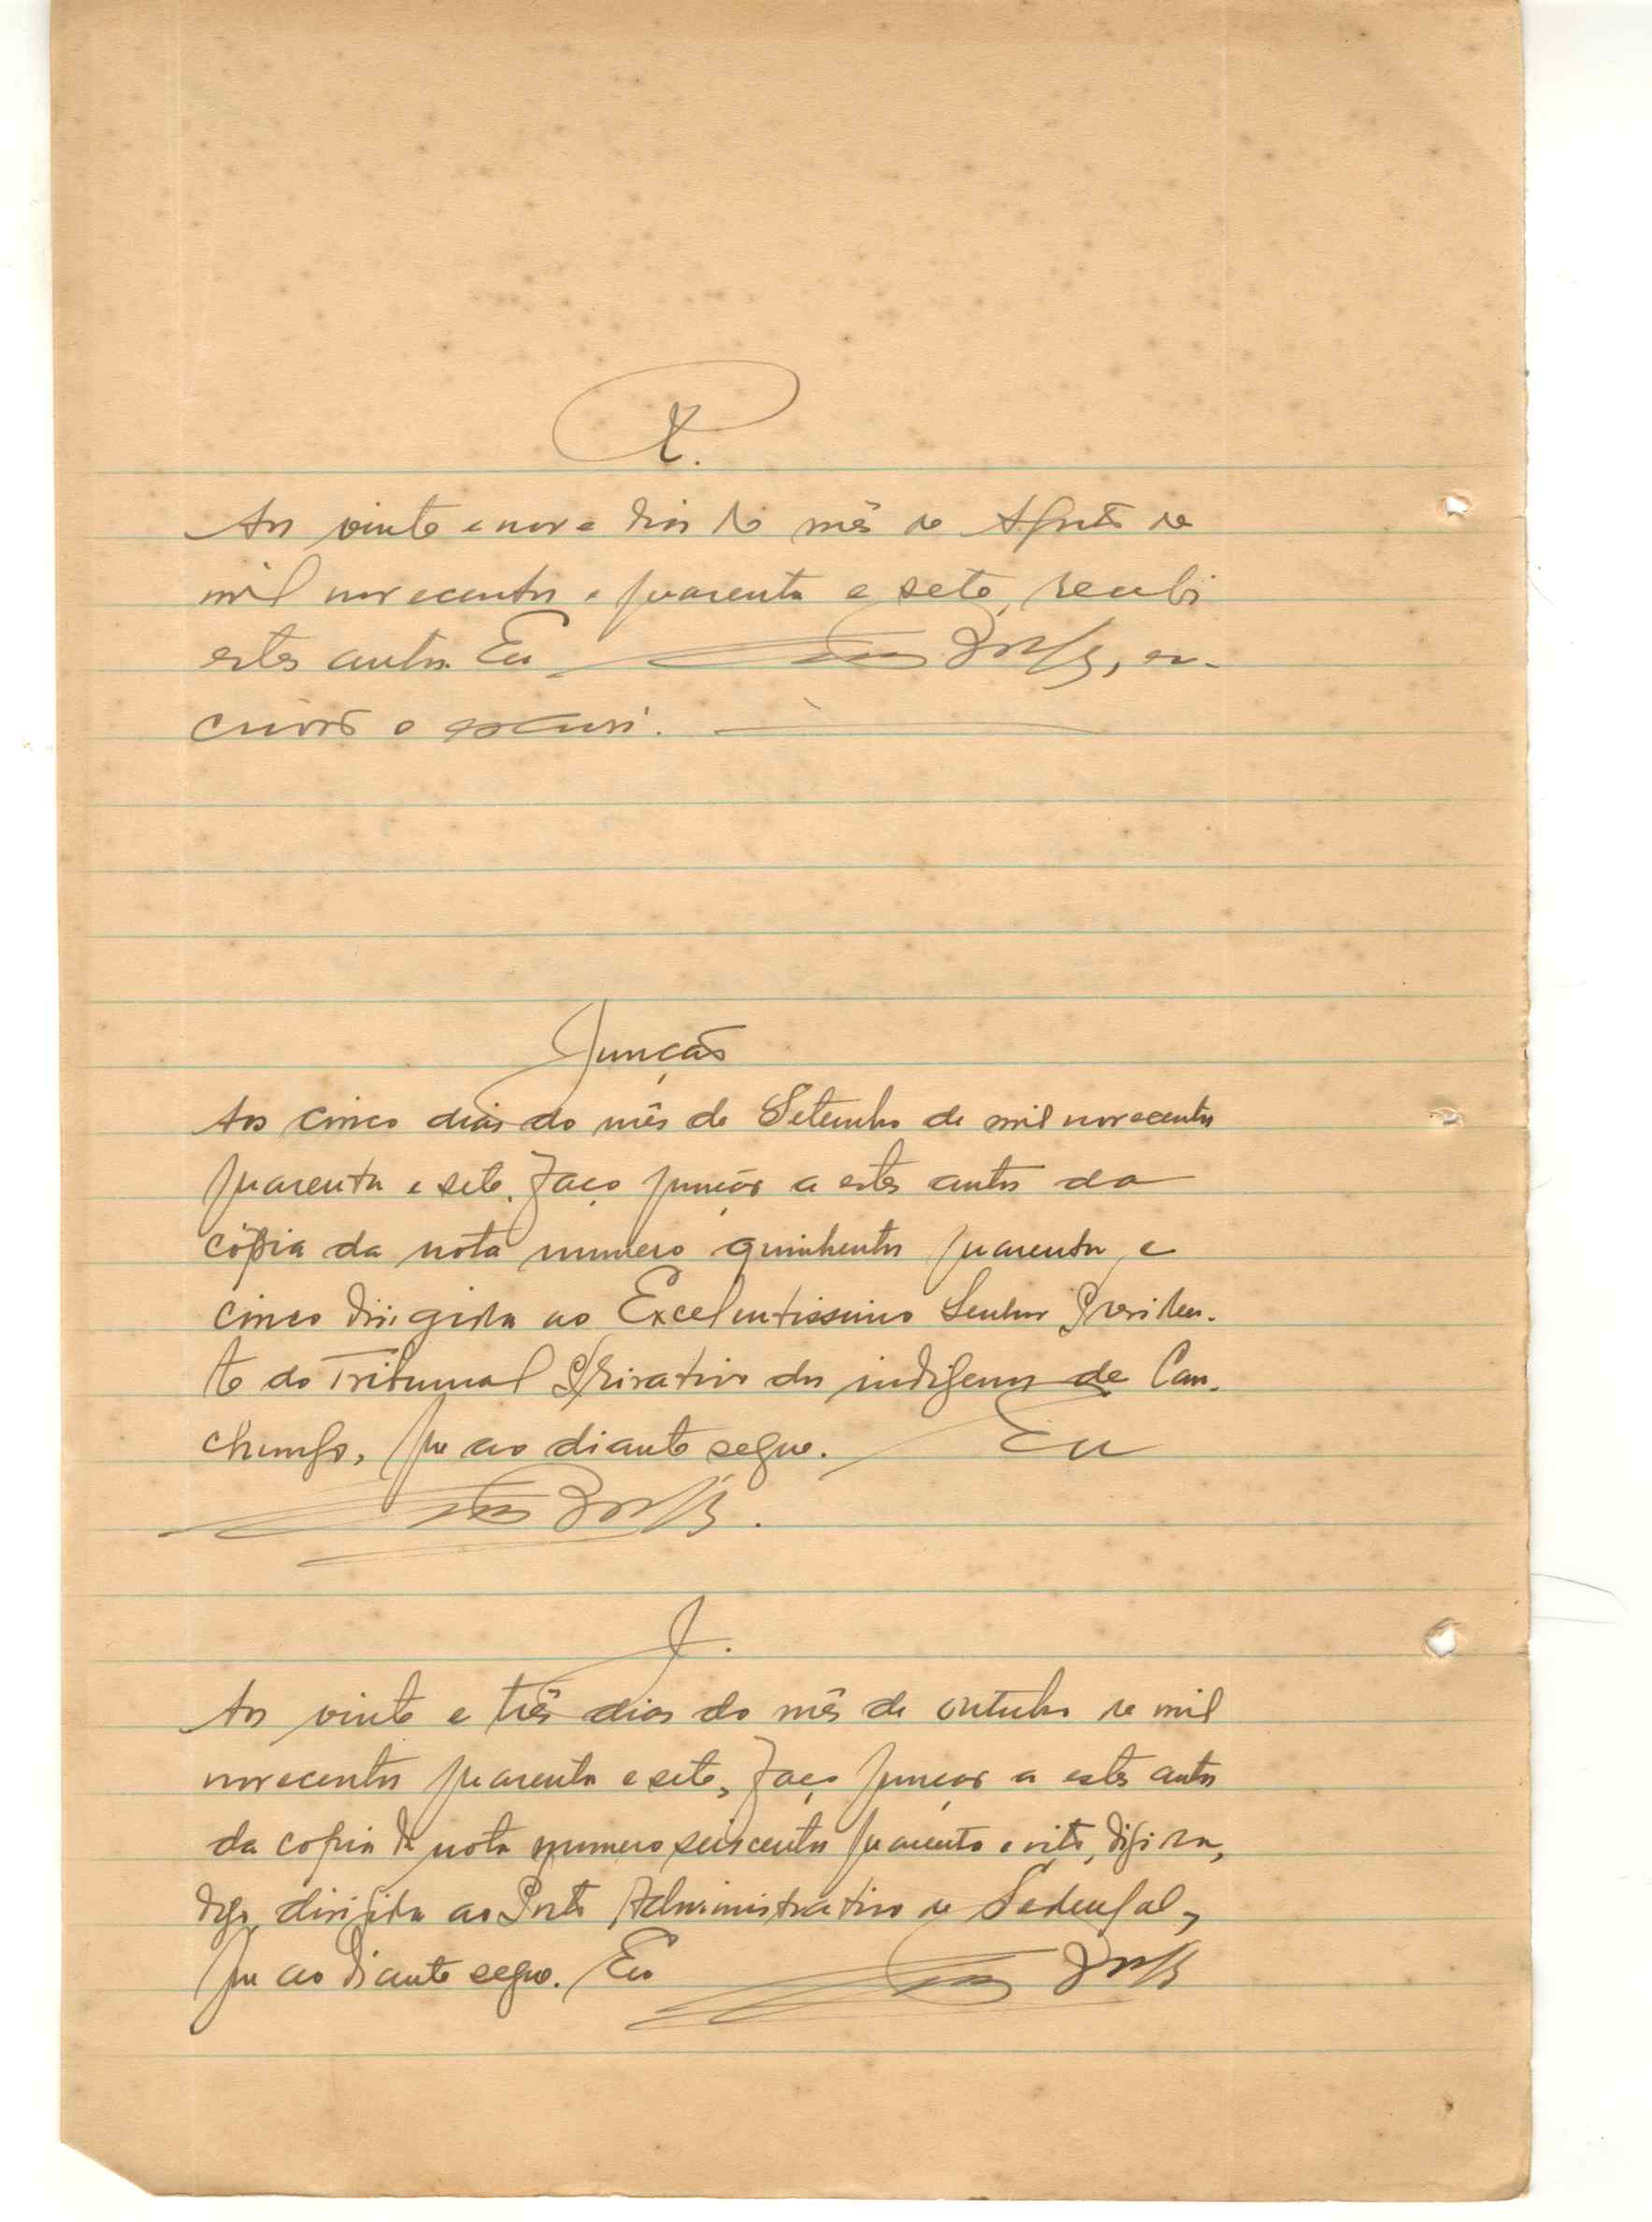 R.
Aos vinte e nove dias do mês de Agosto de
mil novecentos e quarenta e sete, recebi
estes autos. Eu Borges, es-
crivão o escrevi.
Junção
Aos cinco dias do mês de Setembro de mil novecentos
quarenta e sete. Faço junção a estes autos da
cópia da nota numero quinhentos quarenta e
cinco dirigida ao Excelentissimo Senhor Presiden-
te do Tribunal Privativo dos indigenas de Can-
chungo, que ao diante segue. Eu
J.
Aos vinte e três dias do mês de outubro de mil
novecentos quarenta e sete, faço junção a estes autos
da copia da nota numero seiscentos quarenta e oito, digida,
digo, dirigida ao Posto Administrativo de Sedengal,
que ao diante segue. Eu